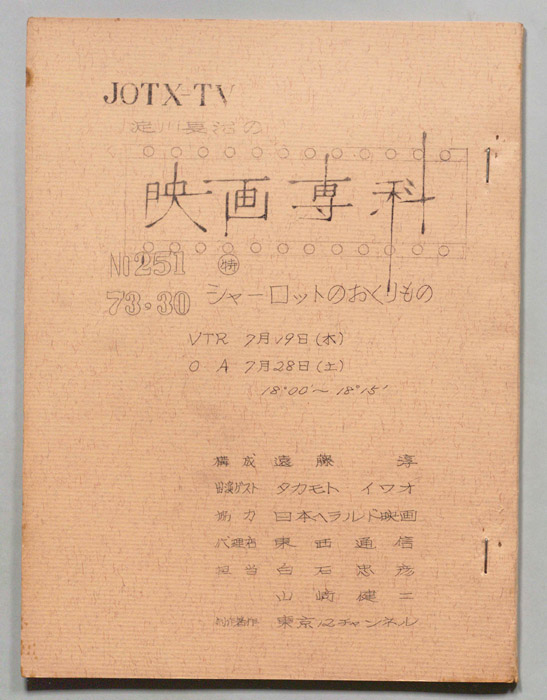 JOTX-TV
淀川長治の
映画専科
No251 ㊕
73・30 シャーロットのおくりもの
VTR 7月19日(木)
O A 7月28日(土)
18°00'~18°15'
構成 遠藤 淳
出演ゲスト タカモト イワオ
協力 日本ヘラルド映画
代理店 東西通信
担当 白石忠彦
山崎健二
制作著作 東京12チャンネル